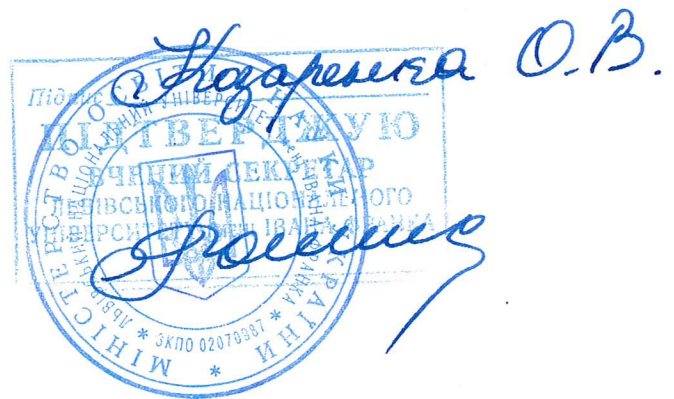 Козаренка О.В.
Підпис
ПІДТВЕРДЖУЮ
ВЧЕНИЙ СЕКРЕТАР
ЛЬВІВСЬКОГО НАЦІОНАЛЬНОГО
УНІВЕРСИТЕТУ ІМЕНІ ІВАНА ФРАНКА
МІНІСТЕРСТВО ОСВІТИ І НАУКИ УКРАЇНИ *
ЛЬВІВСЬКИЙ НАЦІОНАЛЬНИЙ УНІВЕРСИТЕТ імені ІВАНА ФРАНКА
* ЗКПО 02070987 *